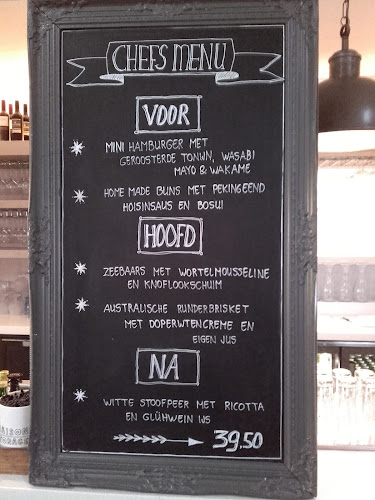 CHEFS MENU
VOOR
MINI HAMBURGER MET
GEROOSTERDE TONIJN, WASABI
MAYO & WAKAME
HOME MADE BUNS MET PEKINGEEND
HOISINSAUS EN BOSUI
HOOFD
ZEEBAARS MET WORTELMOUSSELINE
EN KNOFLOOKSCHUIM
AUSTRALISCHE RUNDERBRISKET
MET DOPERWTENCREME EN
EIGEN JUS
NA
WITTE STOOFPEER MET RICOTTA
EN GLÜHWEIN IJS
39.50